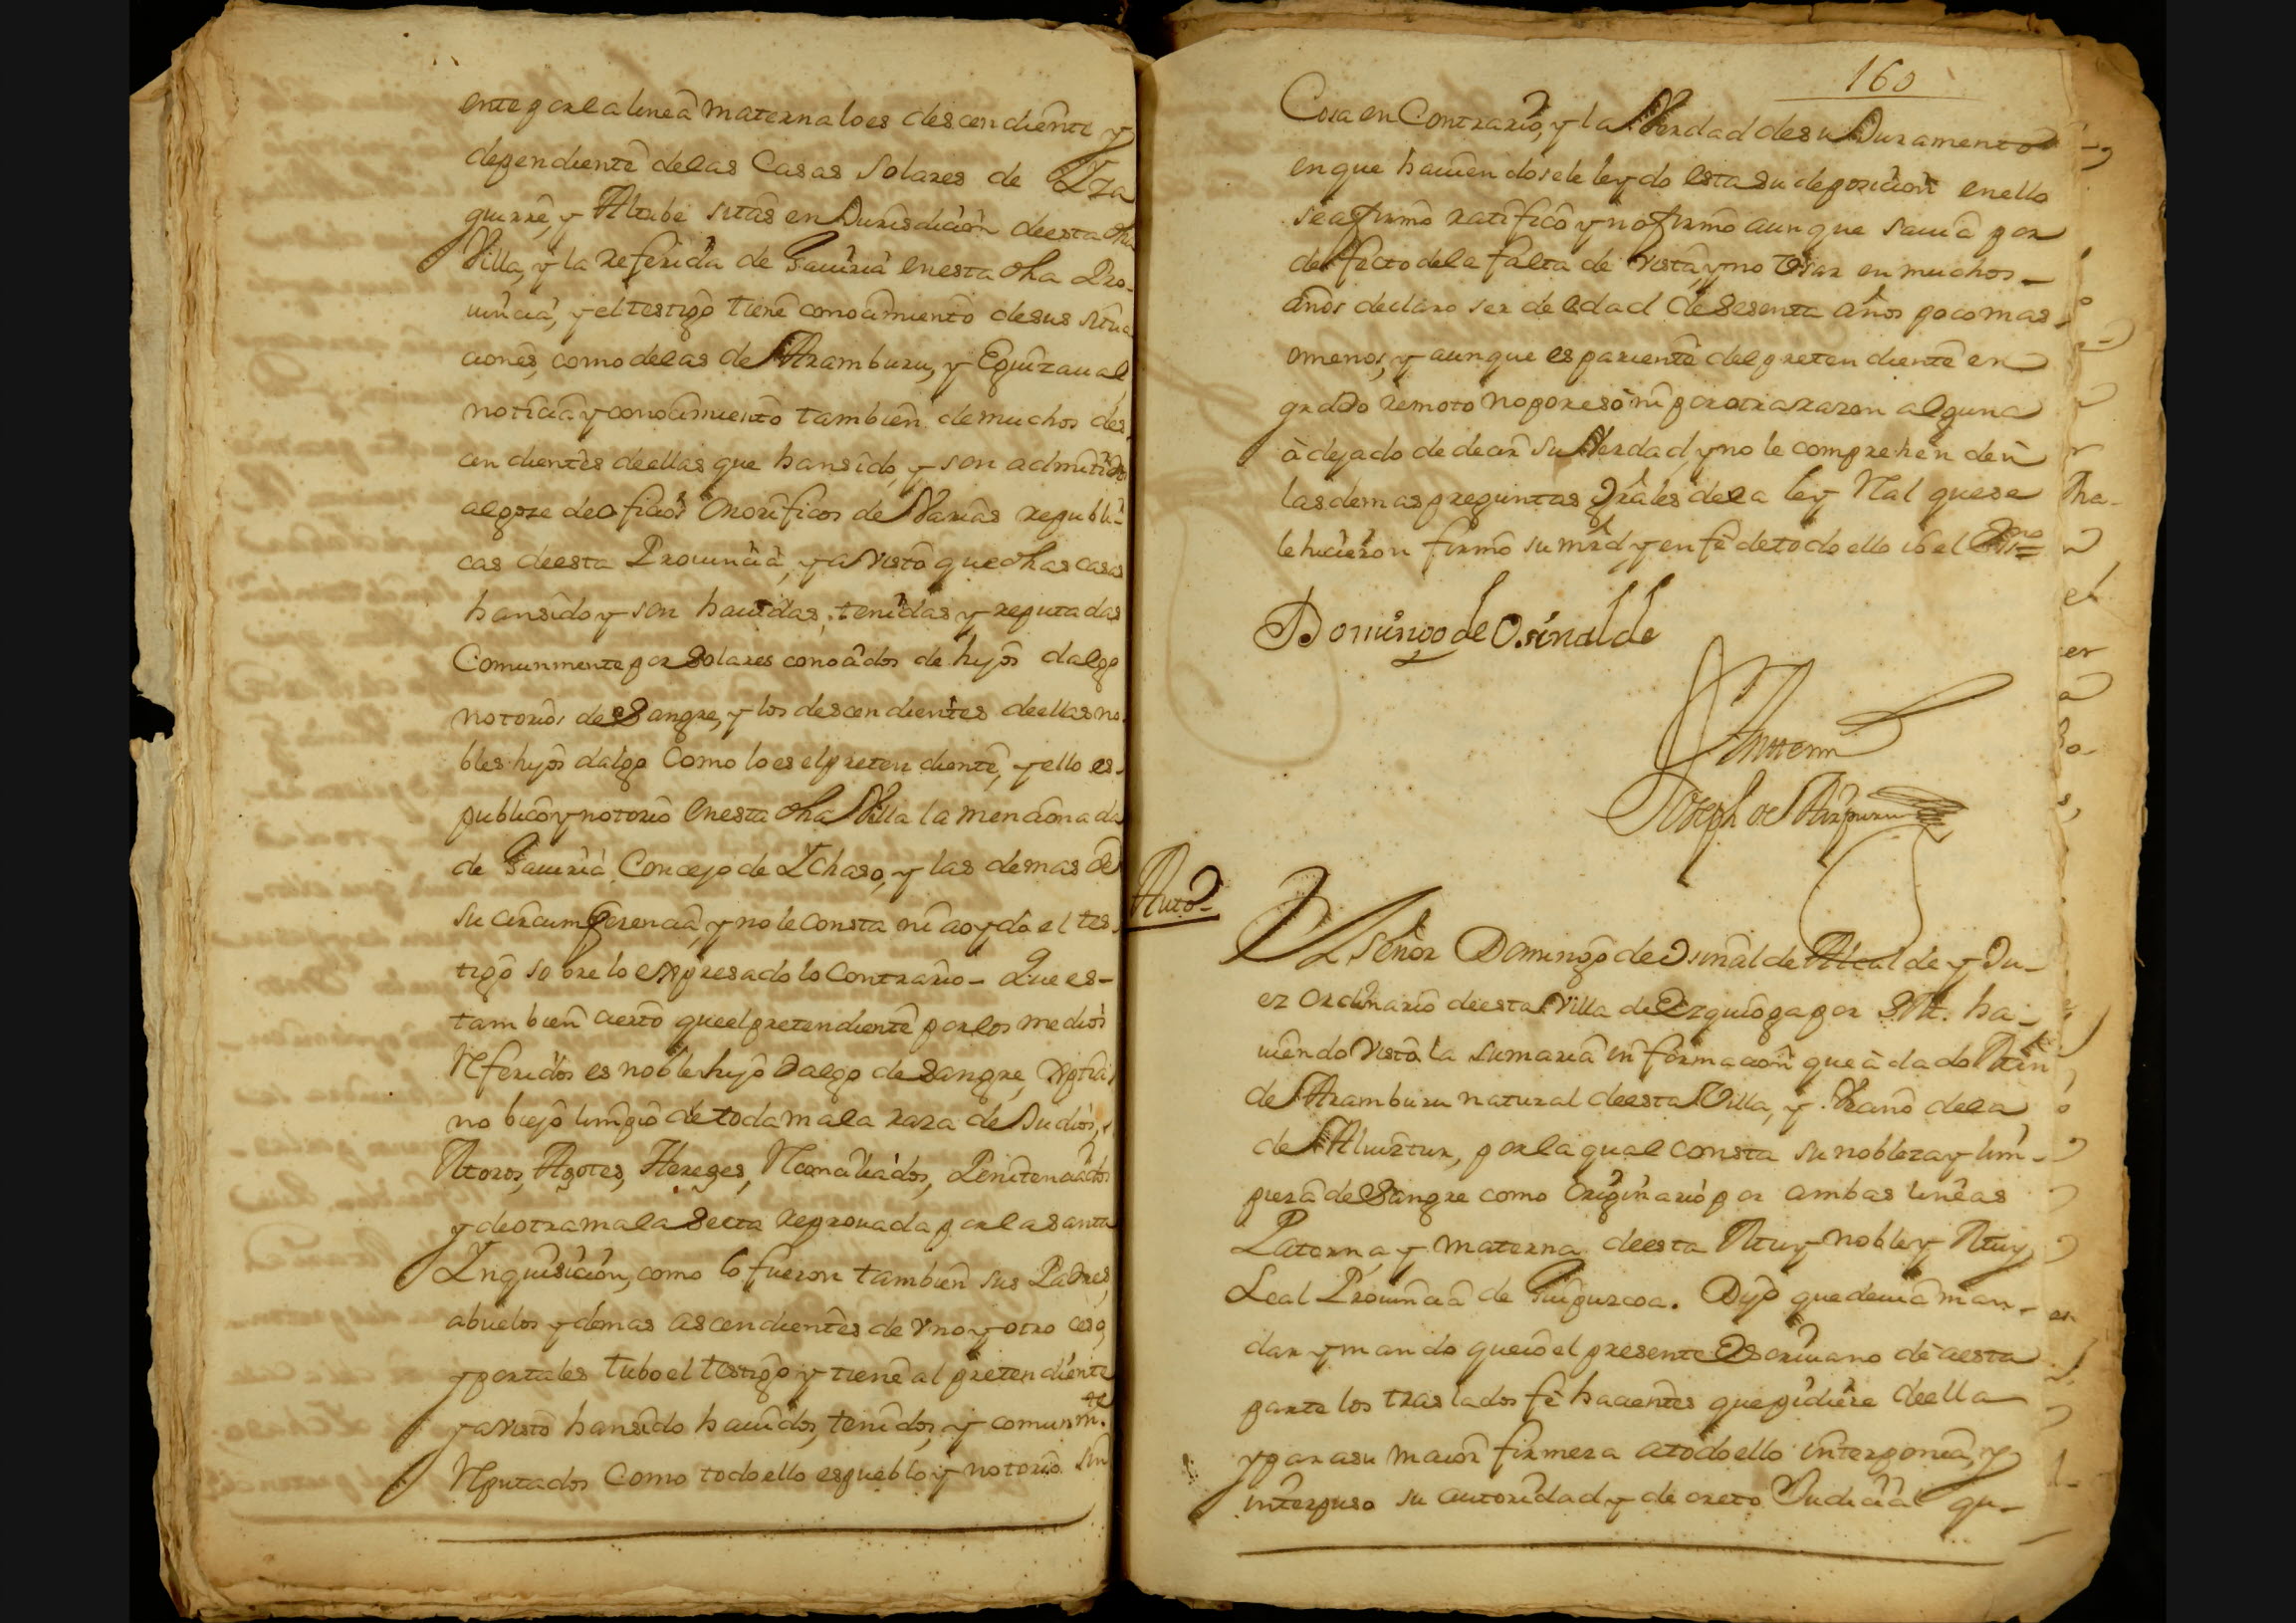 ente por la linea materna lo es descendiente y
dependiente de las Casas Solares de Yza
guirre, y Altube sitas en Jurisdicion de esta dha
Villa, y la referida de Gaviria en esta dha Pro-
uincia, y el testigo tiene conocimiento de sus situa
ciones, como de las de Aramburu, y Eguizaual
noticia y conocimiento tambien de muchos des-
cendientes de ellas que han sido, y son admitidos
al goze de oficios Onorificos de Varias republi-
cas de esta Prouincia, y a visto que dhas casas
han sido y son hauidas, tenidas y reputadas
Comunmente por Solares conocidos de hijos dalgo
notorios de Sangre, y los descendientes de ellas no-
bles hijos dalgo Como lo es el pretendiente, y ello es
publico y notorio en esta dha Villa la mencionada
de Gaviria Concejo de Ychaso, y las demas de
su circumferencia, y no le consta ni a oydo el tes-
tigo sobre lo expresado lo Contrario - Que es-
tambien cierto que el pretendiente por los medios
Referidos es noble hijo dalgo de Sangre, Xptia
no biejo limpio de toda mala raza de Judios,
Moros, Agotes, Hereges, Reconciliados, Penitenciados
y de otra mala Secta reprouada por la santa
Inquisicion, como lo fueron tambien sus Padres,
abuelos y demas ascendientes de vno y otro ceso,
y por tales tubo el testigo y tiene al pretendiente
y a visto han sido hauidos, tenidos, y comunmte.
Reputados Como todo ello es pueblo y notorio sin
160
Cosa en Contrario, y la Verdad de su Juramento
en que hauiendosele leydo esta su deposicion en ello
se afirmo ratifico y no firmo aunque sauia por
defecto de la falta de vista, y no Vsar en muchos
años declaro ser de edad de Sesenta años poco mas
o menos, y aunque es pariente del pretendiente en
grado remoto no por eso ni por otra razon alguna
à dejado de decir su Verdad, y no le comprehenden
las demas preguntas Grâles de la ley Ral que se
le hicieron firmo su mrd y en fe de todo ello io el Essno=
Domingo de Osinalde
Antte mi
Joseph de Aizpuru
Auto-
El Señor Domingo de Osinalde Alcalde y Ju-
ez Ordinario de esta Villa de Ezquioga por S.M. ha-
uiendo visto la sumaria informacion que à dado Mrn
de Aramburu natural de esta Villa, y Vezino de la
de Aluiztur, por la qual consta su nobleza y lim-
pieza de Sangre como originario por ambas lineas
Paterna, y materna de esta Muy noble y Muy
Leal Prouincia de Guipuzcoa. Dijo que deuia man-
dar y mando que io el presente Escriuano dè a esta
parte los traslados fè hacientes que pidiere de ella
y para su maior firmeza a todo ello interponia, y
interpuso su autoridad y decreto Judicial qu-